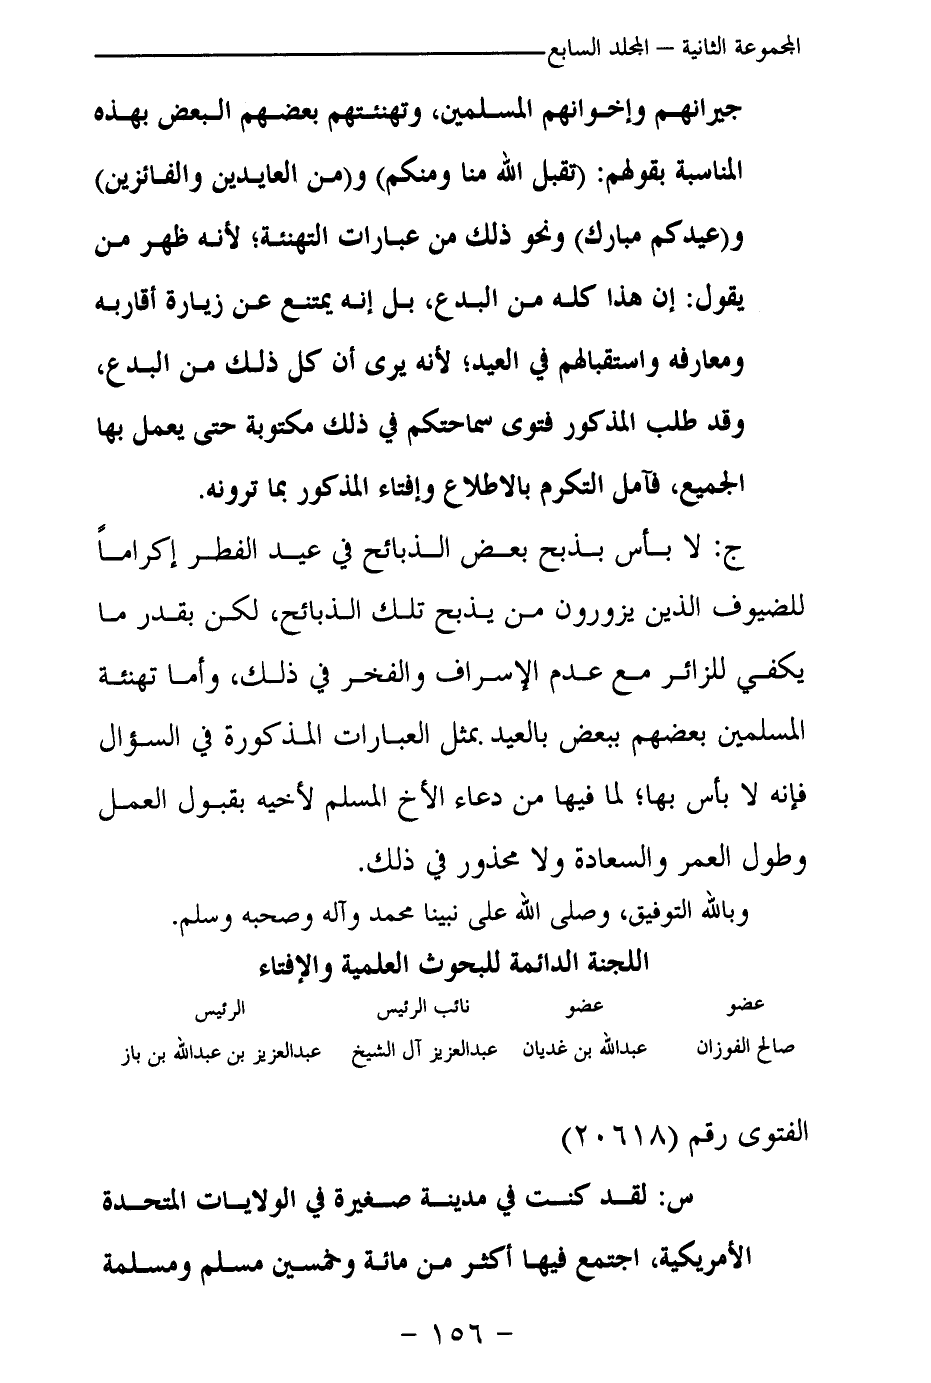 المجموعة الثانية – المجلد السابع
جيرانهم وإخوانهم المسلمين، وتهنئتهم بعضهم البعض بهذه
المناسبة بقولهم: (تقبل الله منا ومنكم) و(من العايدين والفائزين)
و(عيدكم مبارك) ونحو ذلك من عبارات التهنئة؛ لأنه ظهر من
يقول: إن هذا كله من البدع، بل إنه يمتنع عن زيارة أقاربه
ومعارفه واستقبالهم في العيد؛ لأنه يرى أن كل ذلك من البدع،
وقد طلب المذكور فتوى سماحتكم في ذلك مكتوبة حتى يعمل بها
الجميع، فآمل التكرم بالاطلاع وإفتاء المذكور بما ترونه.
ج: لا بأس بذبح بعض الذبائح في عيد الفطر إكراماً
للضيوف الذين يزورون من يذبح تلك الذبائح، لكن بقدر ما
يكفي للزائر مع عدم الإسراف والفخر في ذلك، وأما تهنئة
المسلمين بعضهم ببعض بالعيد بمثل العبارات المذكورة في السؤال
فإنه لا بأس بها؛ لما فيها من دعاء الأخ المسلم لأخيه بقبول العمل
وطول العمر والسعادة ولا محذور في ذلك.
وبالله التوفيق، وصلى الله على نبينا محمد وآله وصحبه وسلم.
اللجنة الدائمة للبحوث العلمية والإفتاء
عضو عضو نائب الرئيس الرئيس
صالح الفوزان عبدالله بن غديان عبدالعزيز آل الشيخ عبدالعزيز بن عبدالله بن باز
الفتوى رقم (٢٠٦١٨)
س: لقد كنت في مدينة صغيرة في الولايات المتحدة
الأمريكية، اجتمع فيها أكثر من مائة وخمسين مسلم ومسلمة
– ١٥٦ –